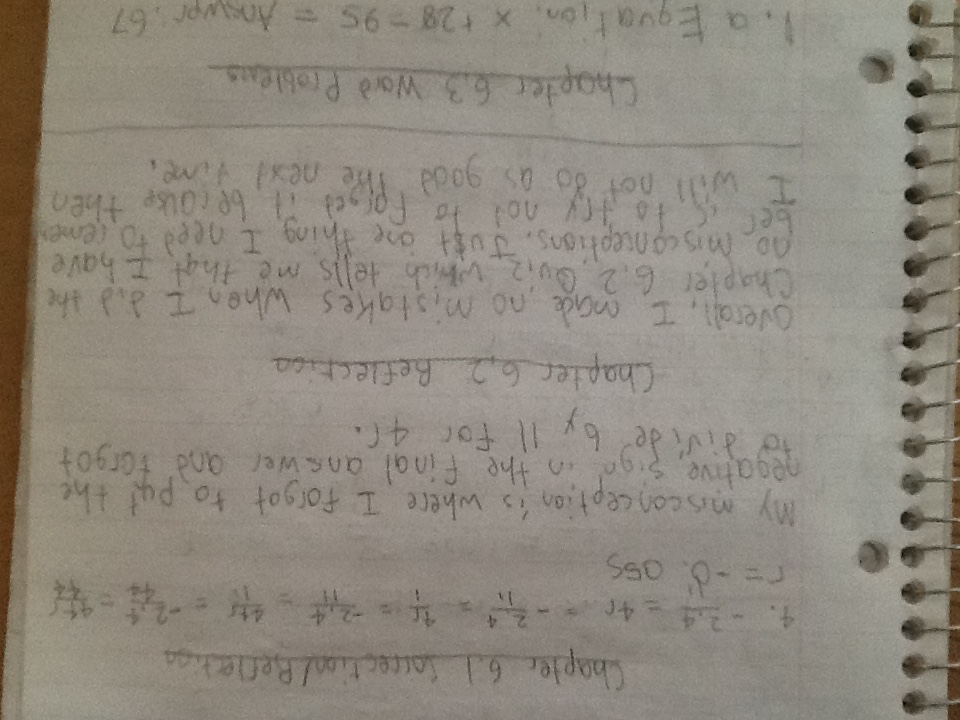 Chapter 6.1 Correction/Reflection
4. - 2.4/11 = 4r = - 2.4/11 = 4r/1 = -2.4/11 = 44r/11 = -2.4/44 = 44r/44
r = -0.055
My misconception is where I forgot to put the
negative sign in the final answer and forgot
to divide by 11 for 4r.
Chapter 6.2 Reflection
Overall, I made no mistakes when I did the
Chapter 6.2 Quiz which tells me that I have
no misconceptions. Just one thing I need to remem
ber is to try not to forget it because then
I will not do as good the next time.
Chapter 6.3 Word Problems
1. a Equation: x +28 = 95 = Answer: 67